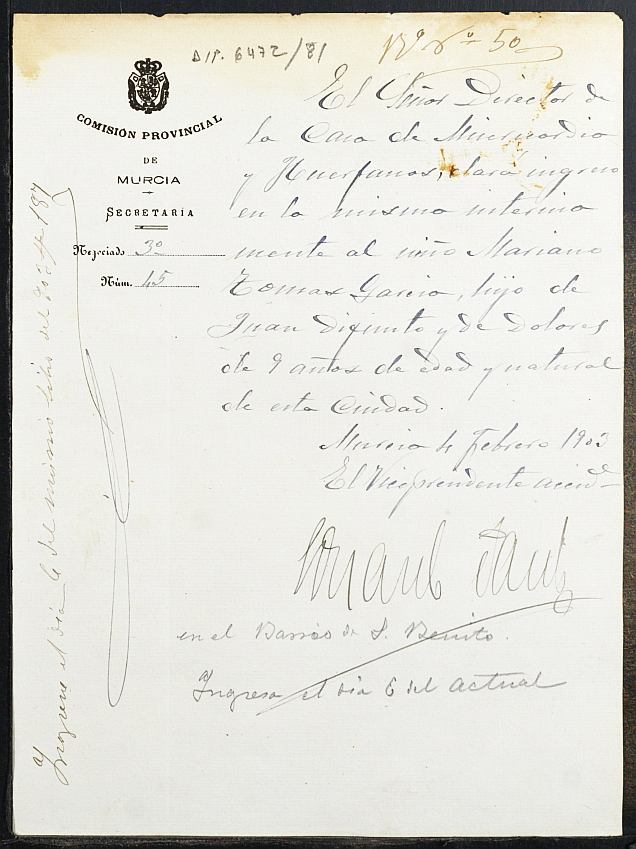 DIP. 6472/81
Rº Nº 50
COMISIÓN PROVINCIAL
DE
MURCIA
SECRETARÍA
Negociado 3º
Núm. 45
El Señor Director de
la Casa de Misericordia
y Huerfanos, dará ingreso
en la misma interina
mente al niño Mariano
Tomas Garcia, hijo de
Juan difunto y de Dolores
de 9 años de edad y natural
de esta Ciudad.
Murcia 4 Febrero 1903
El Vicepresidente accid
en el Barrio de S. Benito.
Ingresa el dia 6 del actual
Ingreso el dia 6 del mismo